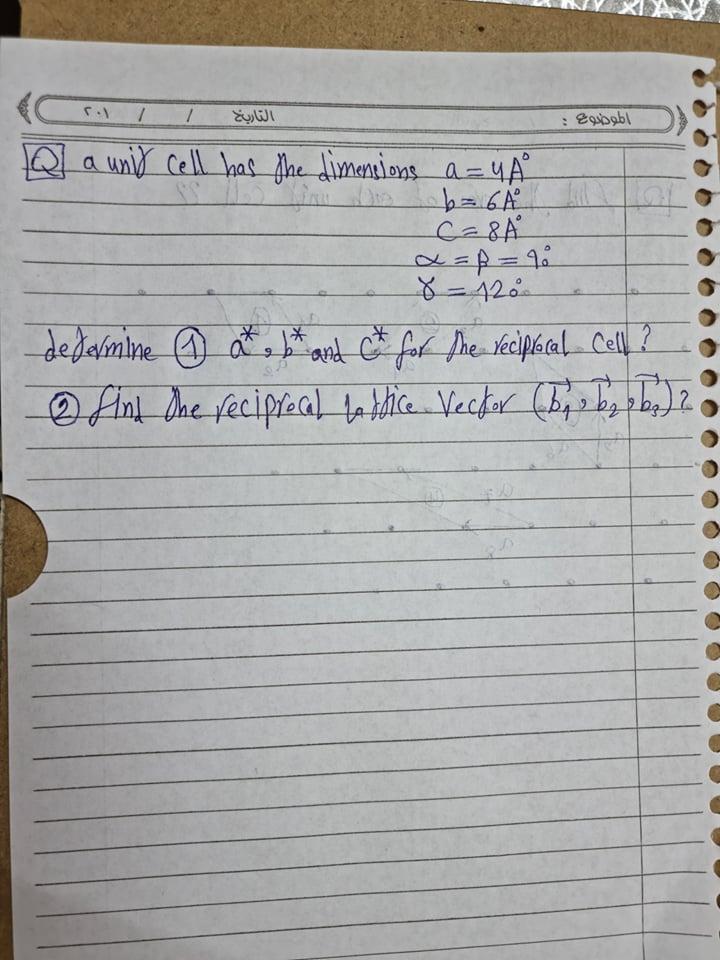 الموضوع : التاريخ / / ٢٠١
Q a unit cell has the dimensions a = 4A°
b = 6A°
C = 8A°
α = β = 90
γ = 120
determine ① a*, b* and C* for the reciprocal cell?
② find the reciprocal lattice vector (b₁⃗, b₂⃗, b₃⃗)?